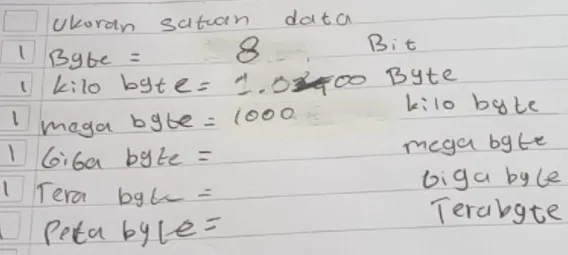 Ukuran satuan data
1 Byte = 8 Bit
1 kilo byte = Byte
1 mega byte = 1000 kilo byte
1 Giga byte = mega byte
1 Tera byte = Giga byte
Peta byte = Terabyte